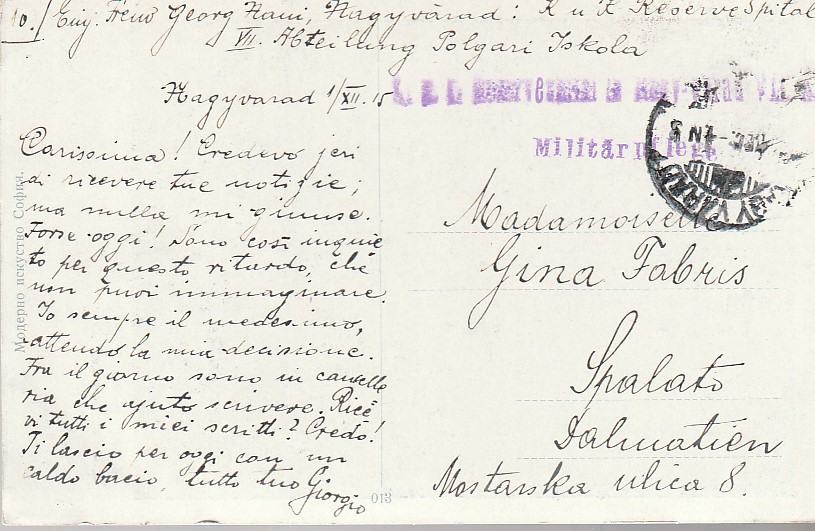 10./ Einj. Freiw Georg Zani, Nagyvárad: K u K Reserve Spital
VII. Abteilung Polgari Iskola
Nagyvarad 1/XII. 15
Militärpflege
Carissima! Credevo jeri
di ricevere tue notizie;
ma nulla mi giunse.
Forse oggi! Sono così inquie
to per questo ritardo, che
non puoi immaginare.
Io sempre il medesimo,
attendo la mia decisione.
Fra il giorno sono in cancelle
ria che ajuto scrivere. Rice
vi tutti i miei scritti? Credo!
Ti lascio per oggi con un
caldo bacio, tutto tuo Giorgio
Madamoiselle
Gina Fabris
Spalato
Dalmatien
Mostarska ulica 8.
Модерно искуство София.
013